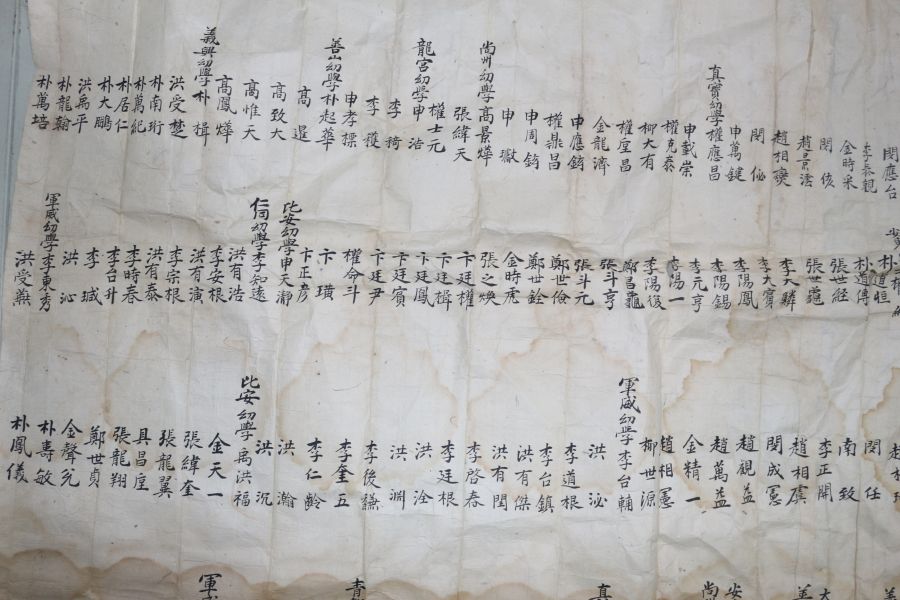 閔應台
李泰觀
金時采
閔侅
趙景濡
趙相奭
閔佖
申萬鍵
真寶幼學權應昌
申載崇
權克泰
柳大有
權垕昌
金龍濟
申應錡
權鼎昌
申周錡
申獻
尙州幼學高景燁
張緯天
權士元
龍宮幼學申浩
李
李穫
申孝標
善山幼學朴起華
高暹
高致大
高惟天
高鳳燁
義興幼學朴楫
洪受楚
朴南珩
朴萬紀
朴居仁
朴大鵬
洪禹平
朴龍翰
朴萬培
朴道恒
朴道傳
張世經
張世龜
李大驎
李大賚
李陽鳳
李陽錫
李元亨
李陽一
李陽復
鄭昌龜
張斗亨
張斗元
鄭世儉
鄭世銓
金時虎
張之煥
卞廷權
卞廷楫
卞廷鳳
卞廷賓
卞廷尹
權命斗
卞璜
卞正彦
比安幼學申天瀞
仁同幼學李知遠
洪有浩
李安根
洪有演
李宗根
洪有泰
李時春
李台升
李珹
洪沁
軍威幼學李東秀
洪受
閔任
南致
李正開
趙相虞
閔成憲
趙觀益
趙萬益
金精一
趙相憲
柳世源
軍威幼學李台輔
洪泌
李道根
李台鎮
洪有傑
洪有閏
李啓春
李廷根
洪洤
洪淵
李後
李奎五
李仁齡
洪瀚
洪沉
比安幼學禹洪福
金天一
張緯奎
張龍翼
具昌垕
張龍翔
鄭世貞
金聲允
朴壽敏
朴鳳儀